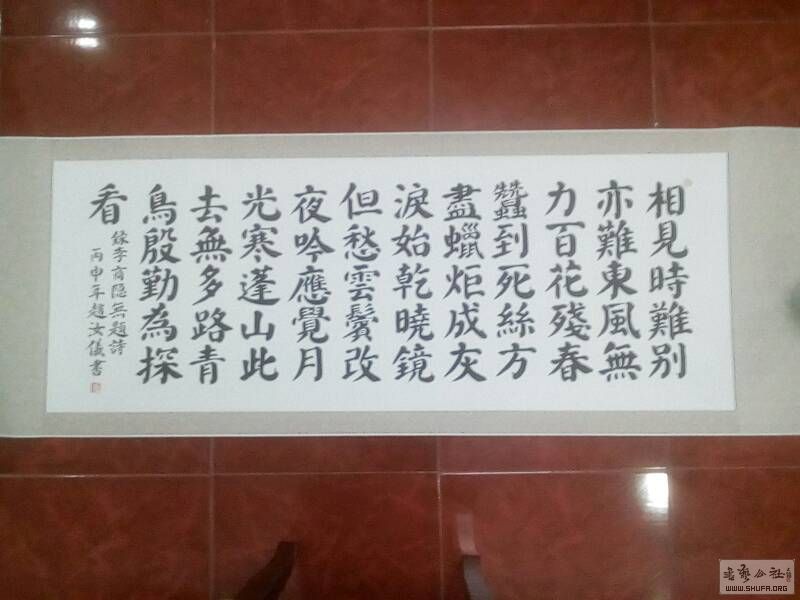 相見時難别
亦難東風無
力百花殘春
蠶到死絲方
盡蠟炬成灰
淚始乾曉鏡
但愁雲鬢改
夜吟應覺月
光寒蓬山此
去無多路青
鳥殷勤為探
看
錄李商隐無題詩
丙申年趙汝儀書
WWW.SHUFA.ORG